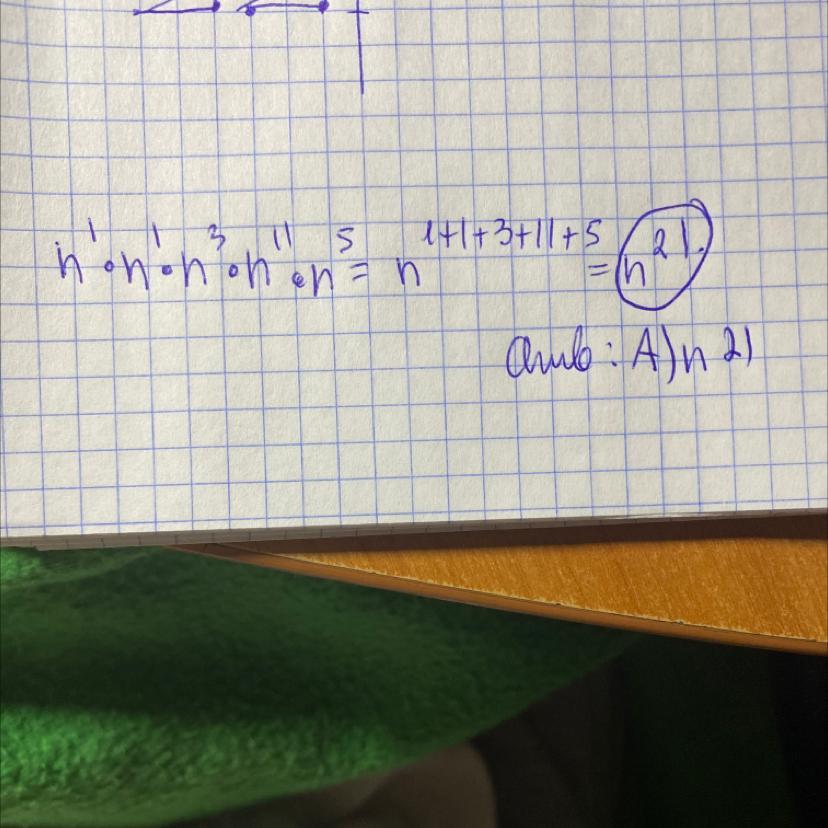 n¹·n¹·n³·n¹¹·n⁵ = n¹⁺¹⁺³⁺¹¹⁺⁵ = n²¹.
Ответ: A) n 21